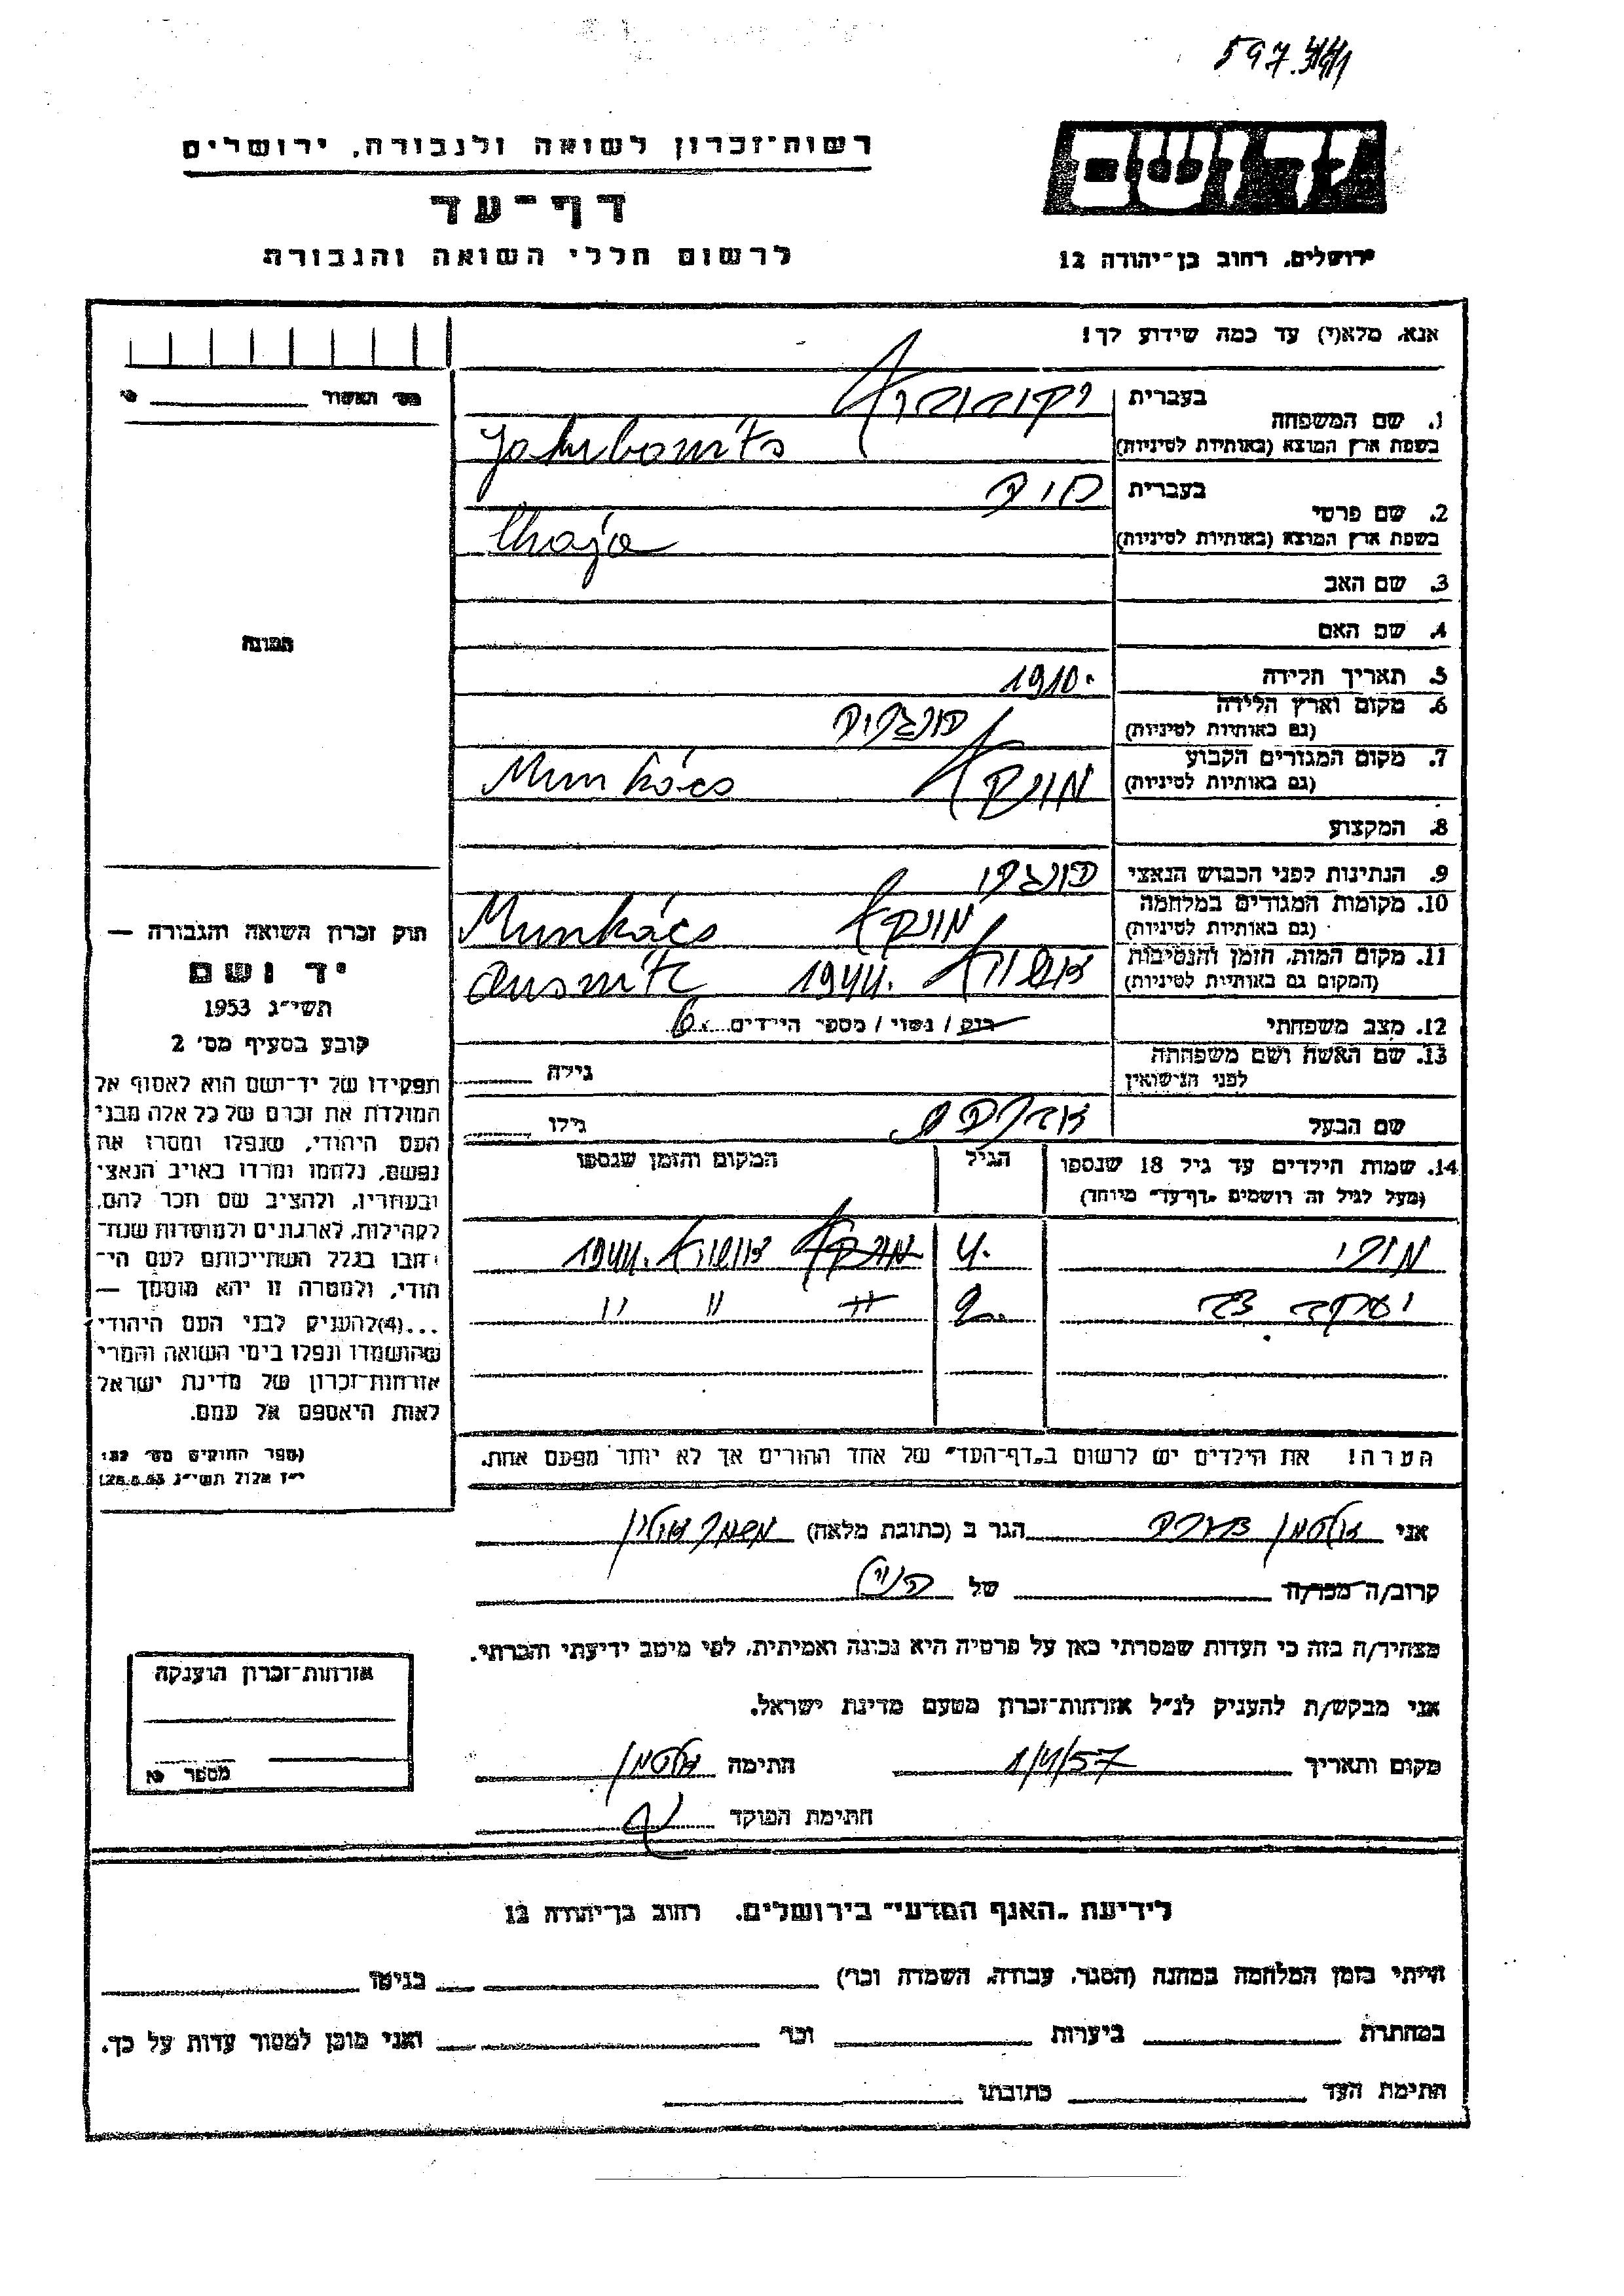 597.
רשות־זכרון לשואה ולגבורה, ירושלים
דף־עד
לרשום חללי השואה והגבורה
יד ושם
ירושלים, רחוב בן־יהודה 12
אנא, מלא(י) עד כמה שידוע לך!
מס' תאשור
1. שם המשפחה
בעברית יקובוביץ
בשפת ארץ המוצא (באותיות לטיניות) Jakubovits
2. שם פרטי
בעברית חיה
בשפת ארץ המוצא (באותיות לטיניות) Chaja
3. שם האב
4. שם האם
5. תאריך הלידה 1910.
6. מקום וארץ הלידה הונגריה
(גם באותיות לטיניות)
7. מקום המגורים הקבוע מונקץ Munkács
(גם באותיות לטיניות)
8. המקצוע
9. הנתינות לפני הכבוש הנאצי הונגרי
10. מקומות המגורים במלחמה מונקץ Munkács
(גם באותיות לטיניות)
11. מקום המות, הזמן והנסיבות אושויץ 1944. Ausvitz
(המקום גם באותיות לטיניות)
12. מצב משפחתי רוק / נשוי / מספר הילדים
13. שם האשה ושם משפחתה
לפני הנישואין
גילה
שם הבעל
גילו
14. שמות הילדים עד גיל 18 שנספו
(מעל לגיל זה רושמים "דף־עד" מיוחד)
הגיל
המקום והזמן שנספו
מוקי 4. מונקץ אושויץ 1944.
יעקב 2. " " " "
הערה! את הילדים יש לרשום ב"דף־העד" של אחד ההורים אך לא יותר מפעם אחת.
תמונה
חוק זכרון השואה והגבורה —
יד ושם
תשי"ג 1953
קובע בסעיף מס' 2
תפקידו של יד־ושם הוא לאסוף אל
המולדת את זכרם של כל אלה מבני
העם היהודי, שנפלו ומסרו את
נפשם, נלחמו ומרדו באויב הנאצי
ובעוזריו, ולהציב שם וזכר להם,
לקהילות, לארגונים ולמוסדות שנח־
רבו בגלל השתייכותם לעם הי־
הודי, ולמטרה זו יהא מוסמך —
...(4) להעניק לבני העם היהודי
שהושמדו ונפלו בימי השואה והמרי
אזרחות־זכרון של מדינת ישראל
לאות היאספם אל עמם.
(ספר החוקים מס' 132
י"ז אלול תשי"ג 28.8.53)
אני אלטמן הגר ב (כתובת מלאה) משמר אילון
קרוב/ה מכר/ה של
מצהיר/ה בזה כי העדות שמסרתי כאן על פרטיה היא נכונה ואמיתית, לפי מיטב ידיעתי והכרתי.
אני מבקש/ת להעניק לנ"ל אזרחות־זכרון מטעם מדינת ישראל.
מקום ותאריך 1/4/57 חתימה אלטמן
חתימת הפוקד
אזרחות־זכרון הוענקה
מספר
לידיעת "האגף המדעי" בירושלים, רחוב בן־יהודה 12
הייתי בזמן המלחמה במחנה (הסגר, עבודה, השמדה וכו') בגיטו
במחתרת ביערות וכו' ואני מוכן למסור עדות על כך.
חתימת העד כתובתו